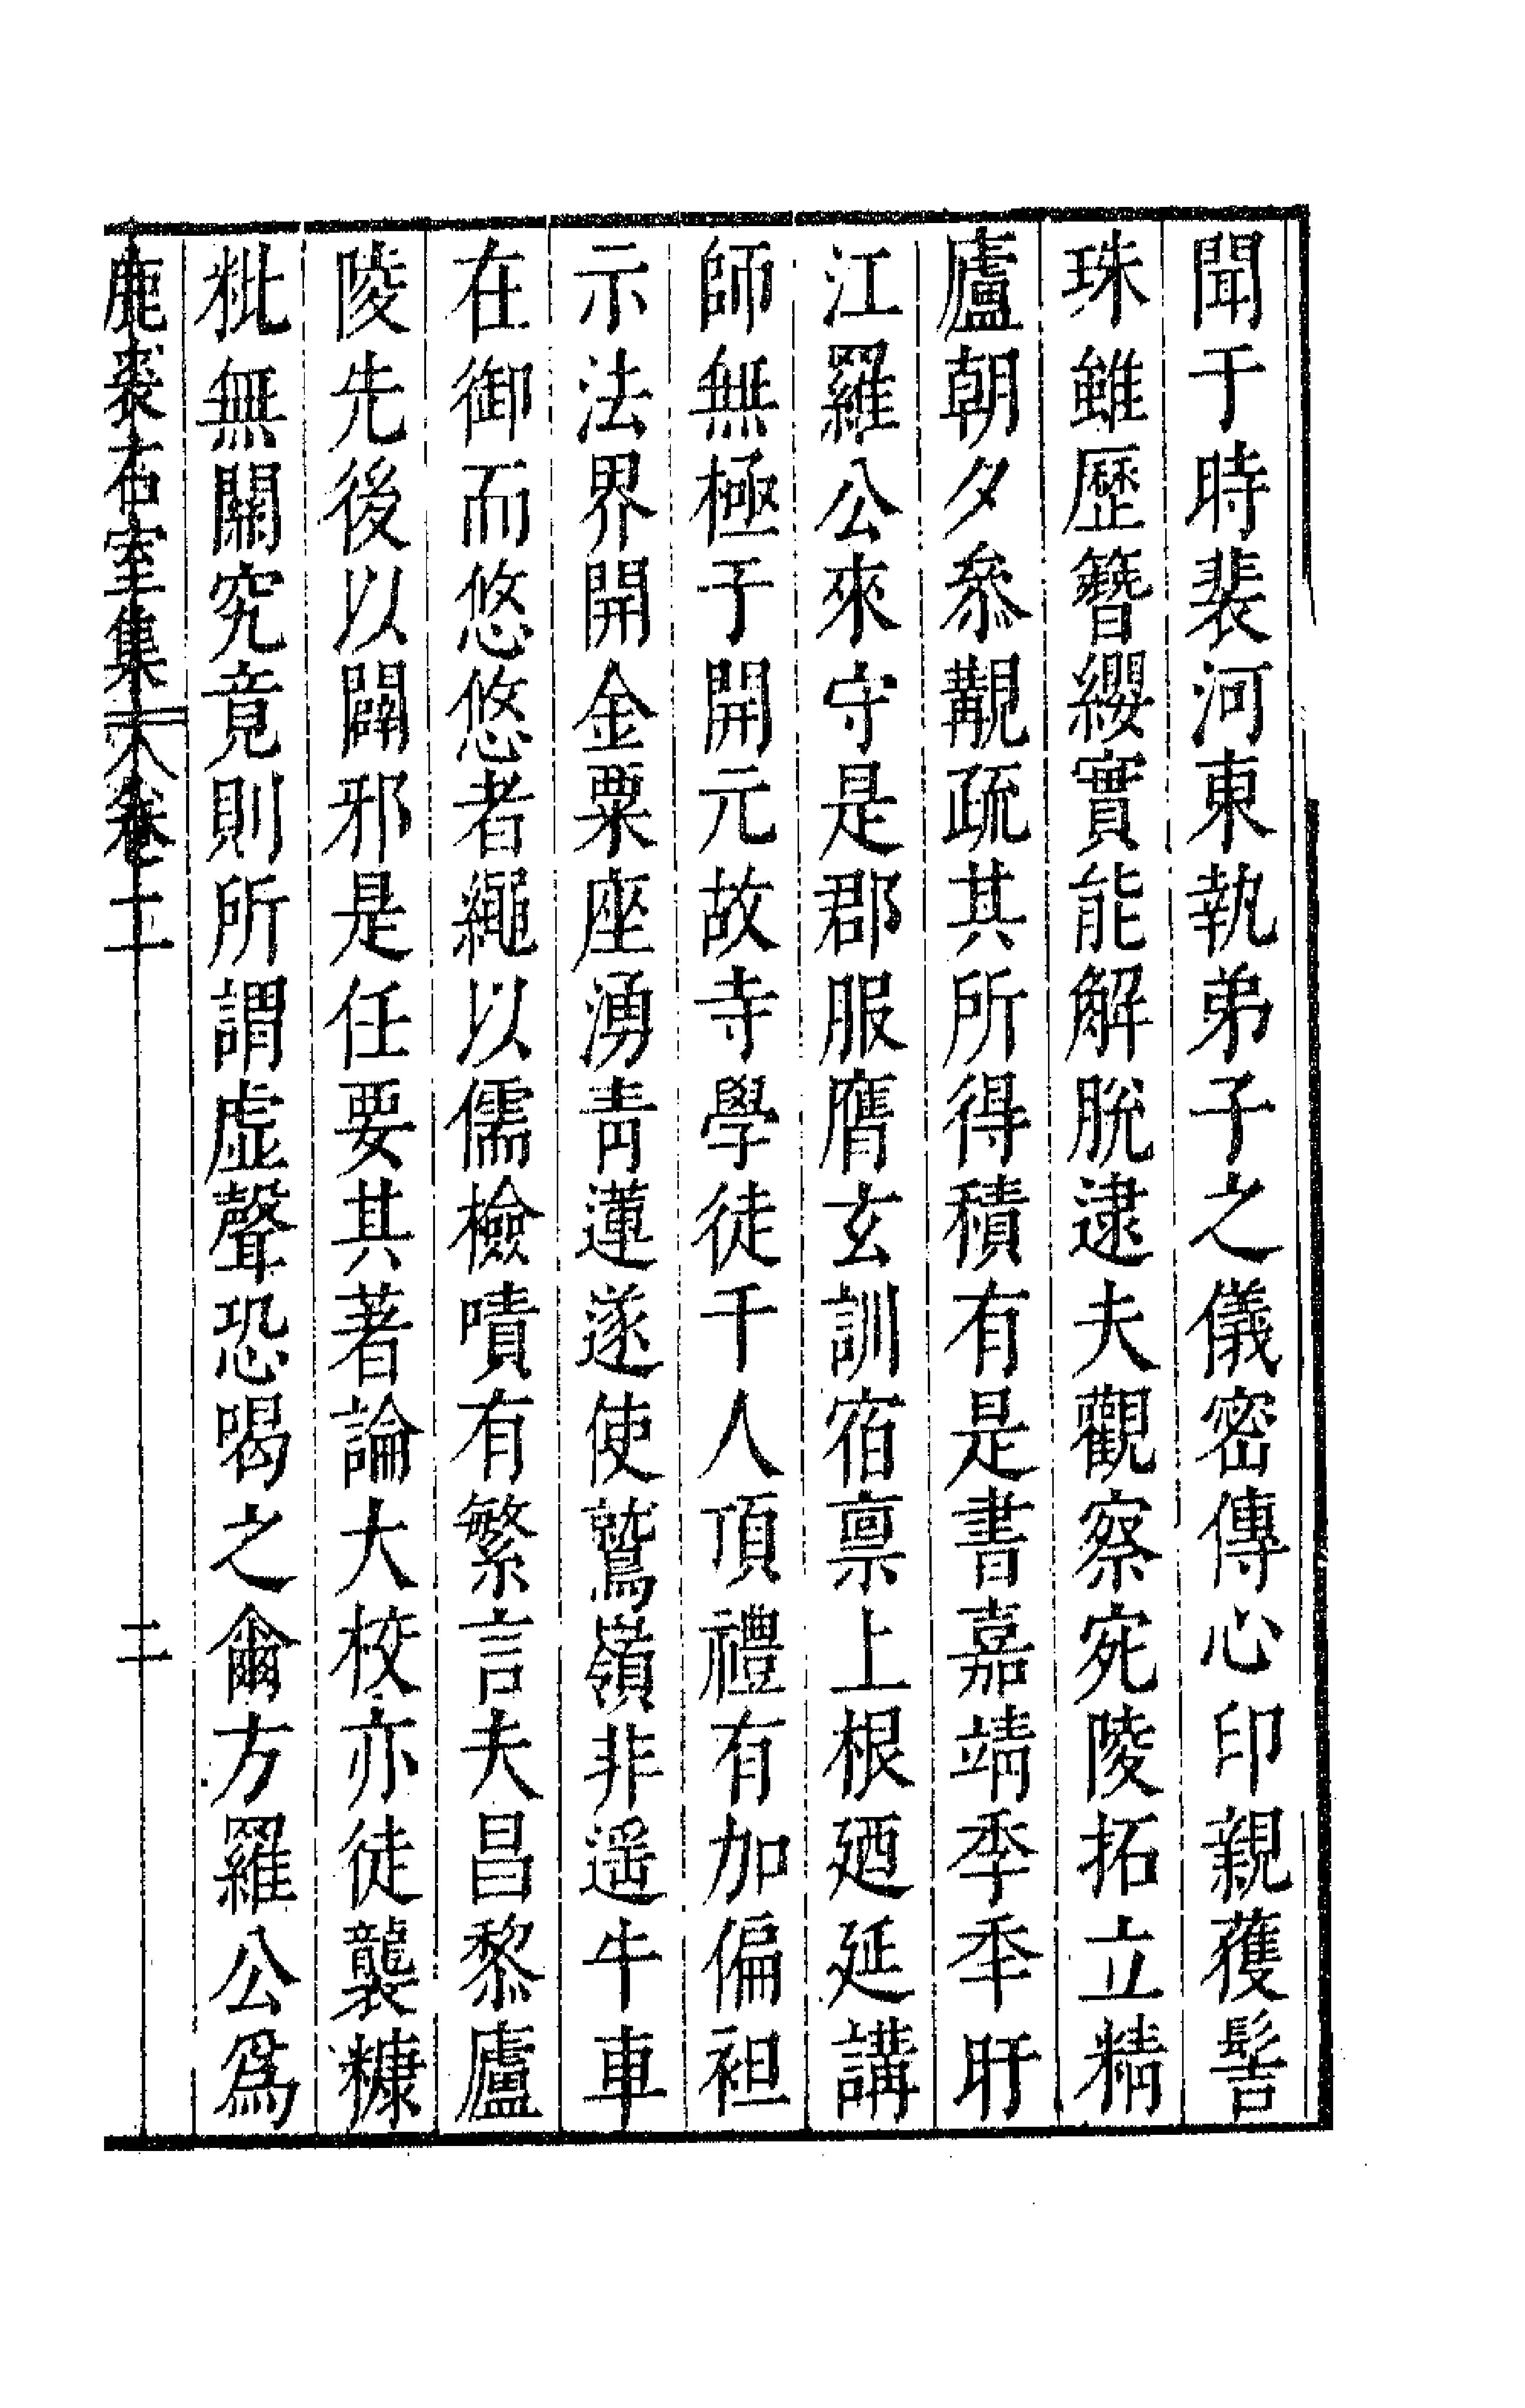 聞于時裴河東執弟子之儀密傳心印親獲髻
珠雖歷簪纓實能解脫逮夫觀察宛陵拓立精
廬朝夕叅覯疏其所得積有是書嘉靖季秊盱
江羅公來守是郡服膺玄訓宿禀上根廼延講
師無極于開元故寺學徒千人頂禮有加偏袒
示法界開金粟座湧青蓮遂使鷲嶺非遥牛車
在御而悠悠者繩以儒檢嘖有繁言夫昌黎廬
陵先後以闢邪是任要其著論大校亦徒襲糠
粃無關究竟則所謂虛聲恐喝之爾方羅公爲
鹿裘石室集 卷十二 二